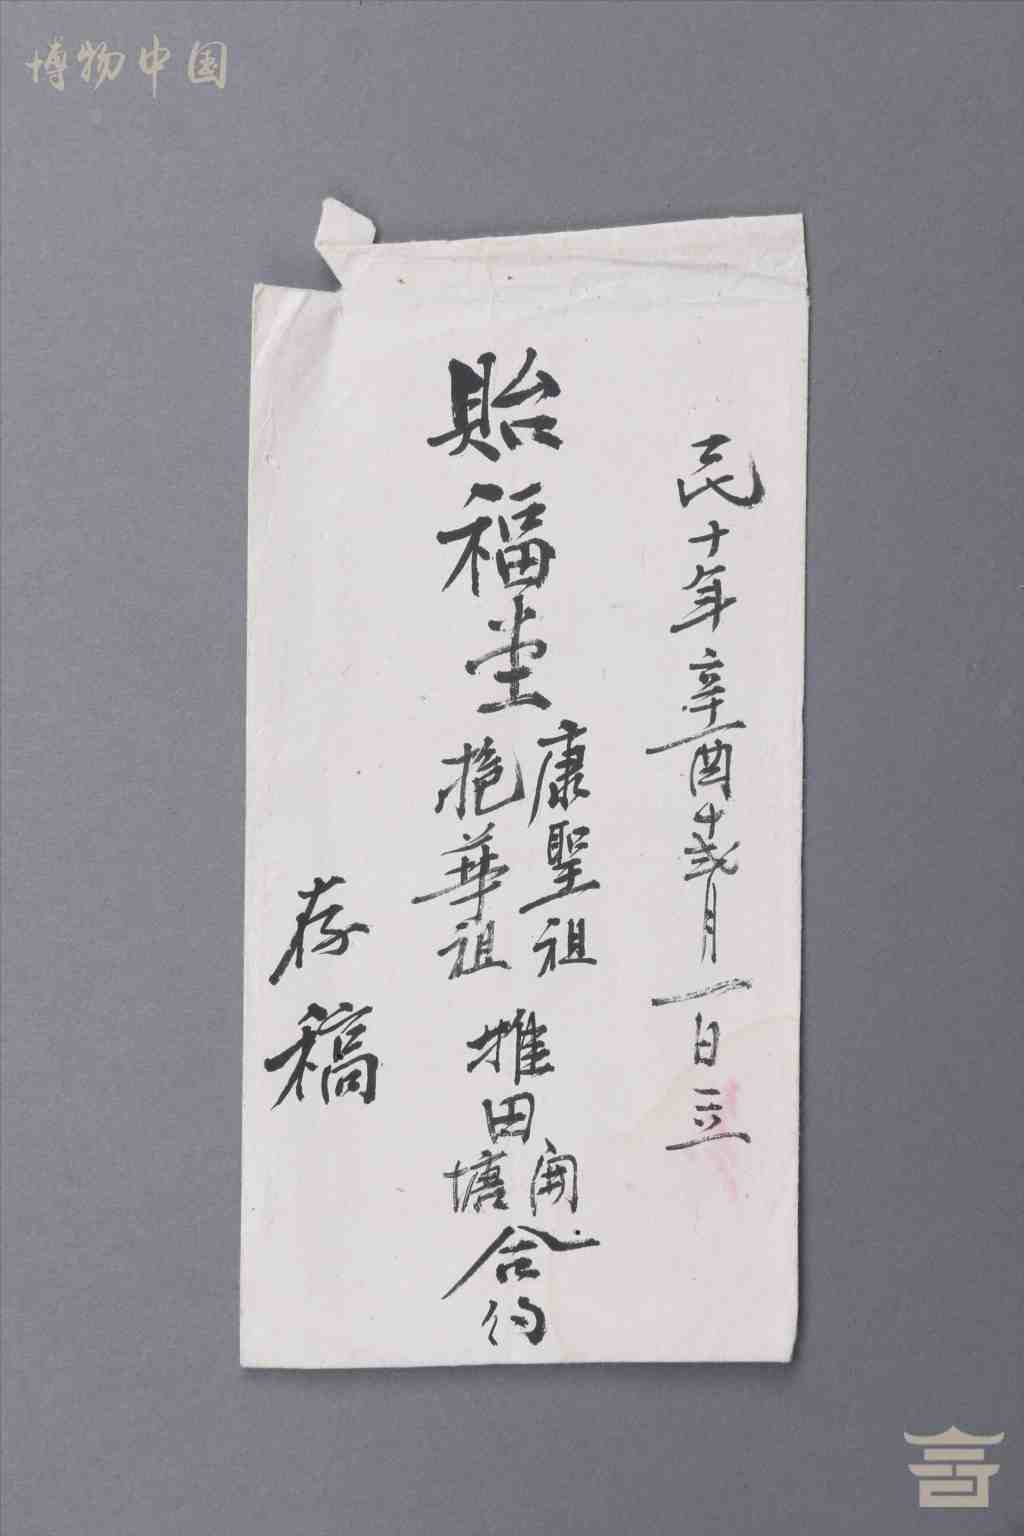 博物中国
民十年辛酉十弍月一日立
貽福堂
康聖祖
挹華祖
推田
塘
合约
存稿